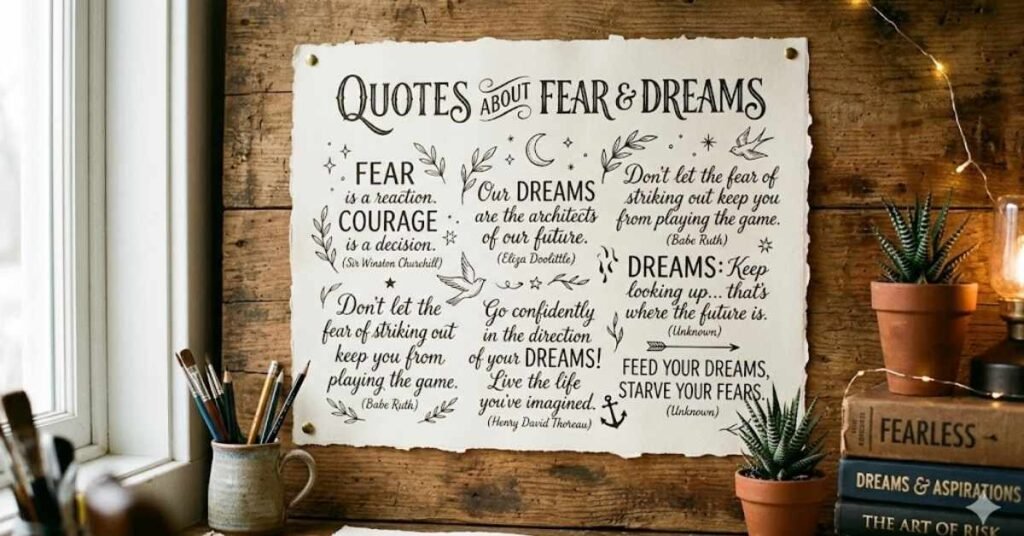 QUOTES ABOUT FEAR & DREAMS
FEAR
is a reaction.
COURAGE
is a decision.
(Sir Winston Churchill)
Our DREAMS
are the architects
of our future.
(Eliza Doolittle)
Don't let the fear of
striking out keep you
from playing the game.
(Babe Ruth)
Don't let the
fear of striking out
keep you from
playing the game.
(Babe Ruth)
Go confidently
in the direction
of your DREAMS!
Live the life
you've imagined.
(Henry David Thoreau)
DREAMS: Keep
looking up... that's
where the future is.
(Unknown)
FEED YOUR DREAMS,
STARVE YOUR FEARS.
(Unknown)
FEARLESS
DREAMS & ASPIRATIONS
THE ART OF RISK